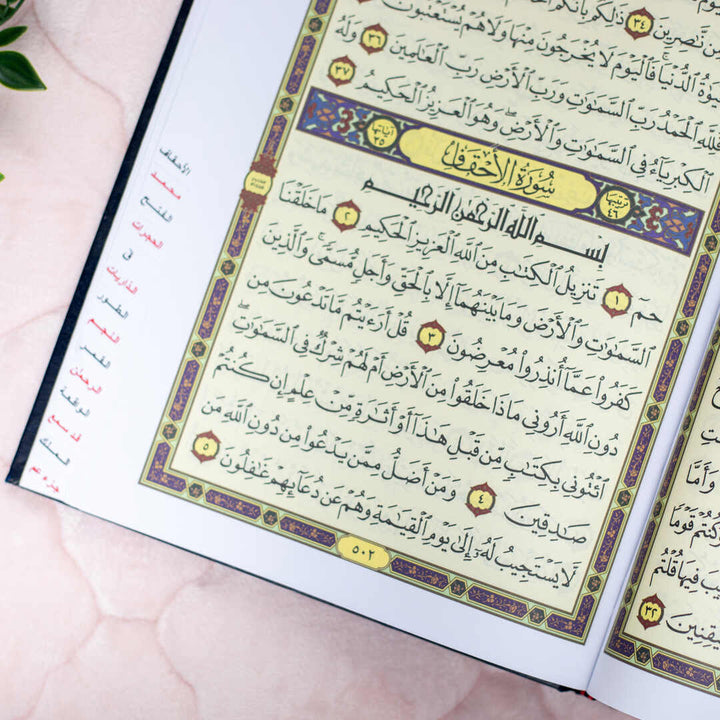 مِّن نَّـٰصِرِينَ ٣٤ ذَٰلِكُم بِأَنَّكُمُ
ٱلدُّنْيَا فَٱلْيَوْمَ لَا يُخْرَجُونَ مِنْهَا وَلَا هُمْ يُسْتَعْتَبُونَ
فَلِلَّهِ ٱلْحَمْدُ رَبِّ ٱلسَّمَـٰوَٰتِ وَرَبِّ ٱلْأَرْضِ رَبِّ ٱلْعَـٰلَمِينَ ٣٦ وَلَهُ
ٱلْكِبْرِيَآءُ فِى ٱلسَّمَـٰوَٰتِ وَٱلْأَرْضِ وَهُوَ ٱلْعَزِيزُ ٱلْحَكِيمُ ٣٧
ترتيبها ٤٦ سُورَةُ الأَحْقَافِ آياتها ٣٥
بِسْمِ ٱللَّهِ ٱلرَّحْمَـٰنِ ٱلرَّحِيمِ
حمٓ ١ تَنزِيلُ ٱلْكِتَـٰبِ مِنَ ٱللَّهِ ٱلْعَزِيزِ ٱلْحَكِيمِ ٢ مَا خَلَقْنَا
ٱلسَّمَـٰوَٰتِ وَٱلْأَرْضَ وَمَا بَيْنَهُمَآ إِلَّا بِٱلْحَقِّ وَأَجَلٍ مُّسَمًّى ۚ وَٱلَّذِينَ
كَفَرُوا۟ عَمَّآ أُنذِرُوا۟ مُعْرِضُونَ ٣ قُلْ أَرَءَيْتُم مَّا تَدْعُونَ مِن
دُونِ ٱللَّهِ أَرُونِى مَاذَا خَلَقُوا۟ مِنَ ٱلْأَرْضِ أَمْ لَهُمْ شِرْكٌ فِى ٱلسَّمَـٰوَٰتِ ۖ
ٱئْتُونِى بِكِتَـٰبٍ مِّن قَبْلِ هَـٰذَآ أَوْ أَثَـٰرَةٍ مِّنْ عِلْمٍ إِن كُنتُمْ
صَـٰدِقِينَ ٤ وَمَنْ أَضَلُّ مِمَّن يَدْعُوا۟ مِن دُونِ ٱللَّهِ مَن
لَّا يَسْتَجِيبُ لَهُۥٓ إِلَىٰ يَوْمِ ٱلْقِيَـٰمَةِ وَهُمْ عَن دُعَآئِهِمْ غَـٰفِلُونَ ٥
٥٠٢
الأحقاف
محمد
الفتح
الحجرات
ق
الذاريات
الطور
النجم
القمر
الرحمن
الواقعة
قد سمع
الملك
جزء عم
وَأَمَّا
قَوْمًا
قُلْتُم
٣٢